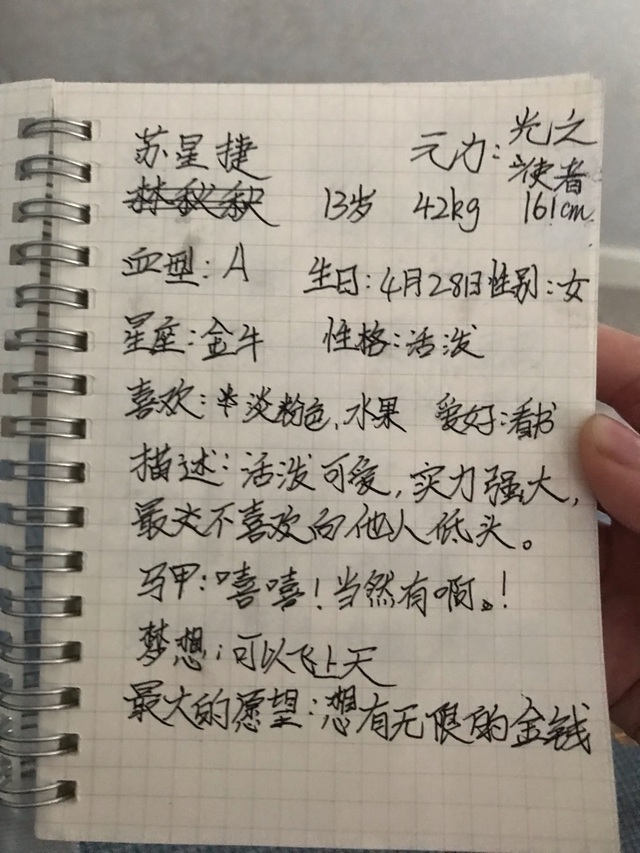 苏星捷 元力:光之使者
13岁 42kg 161cm
血型:A 生日:4月28日性别:女
星座:金牛 性格:活泼
喜欢:淡粉色、水果 爱好:看书
描述:活泼可爱,实力强大,
最不喜欢向他人低头。
马甲:嘻嘻!当然有啊。!
梦想:可以飞上天
最大的愿望:想有无限的金钱